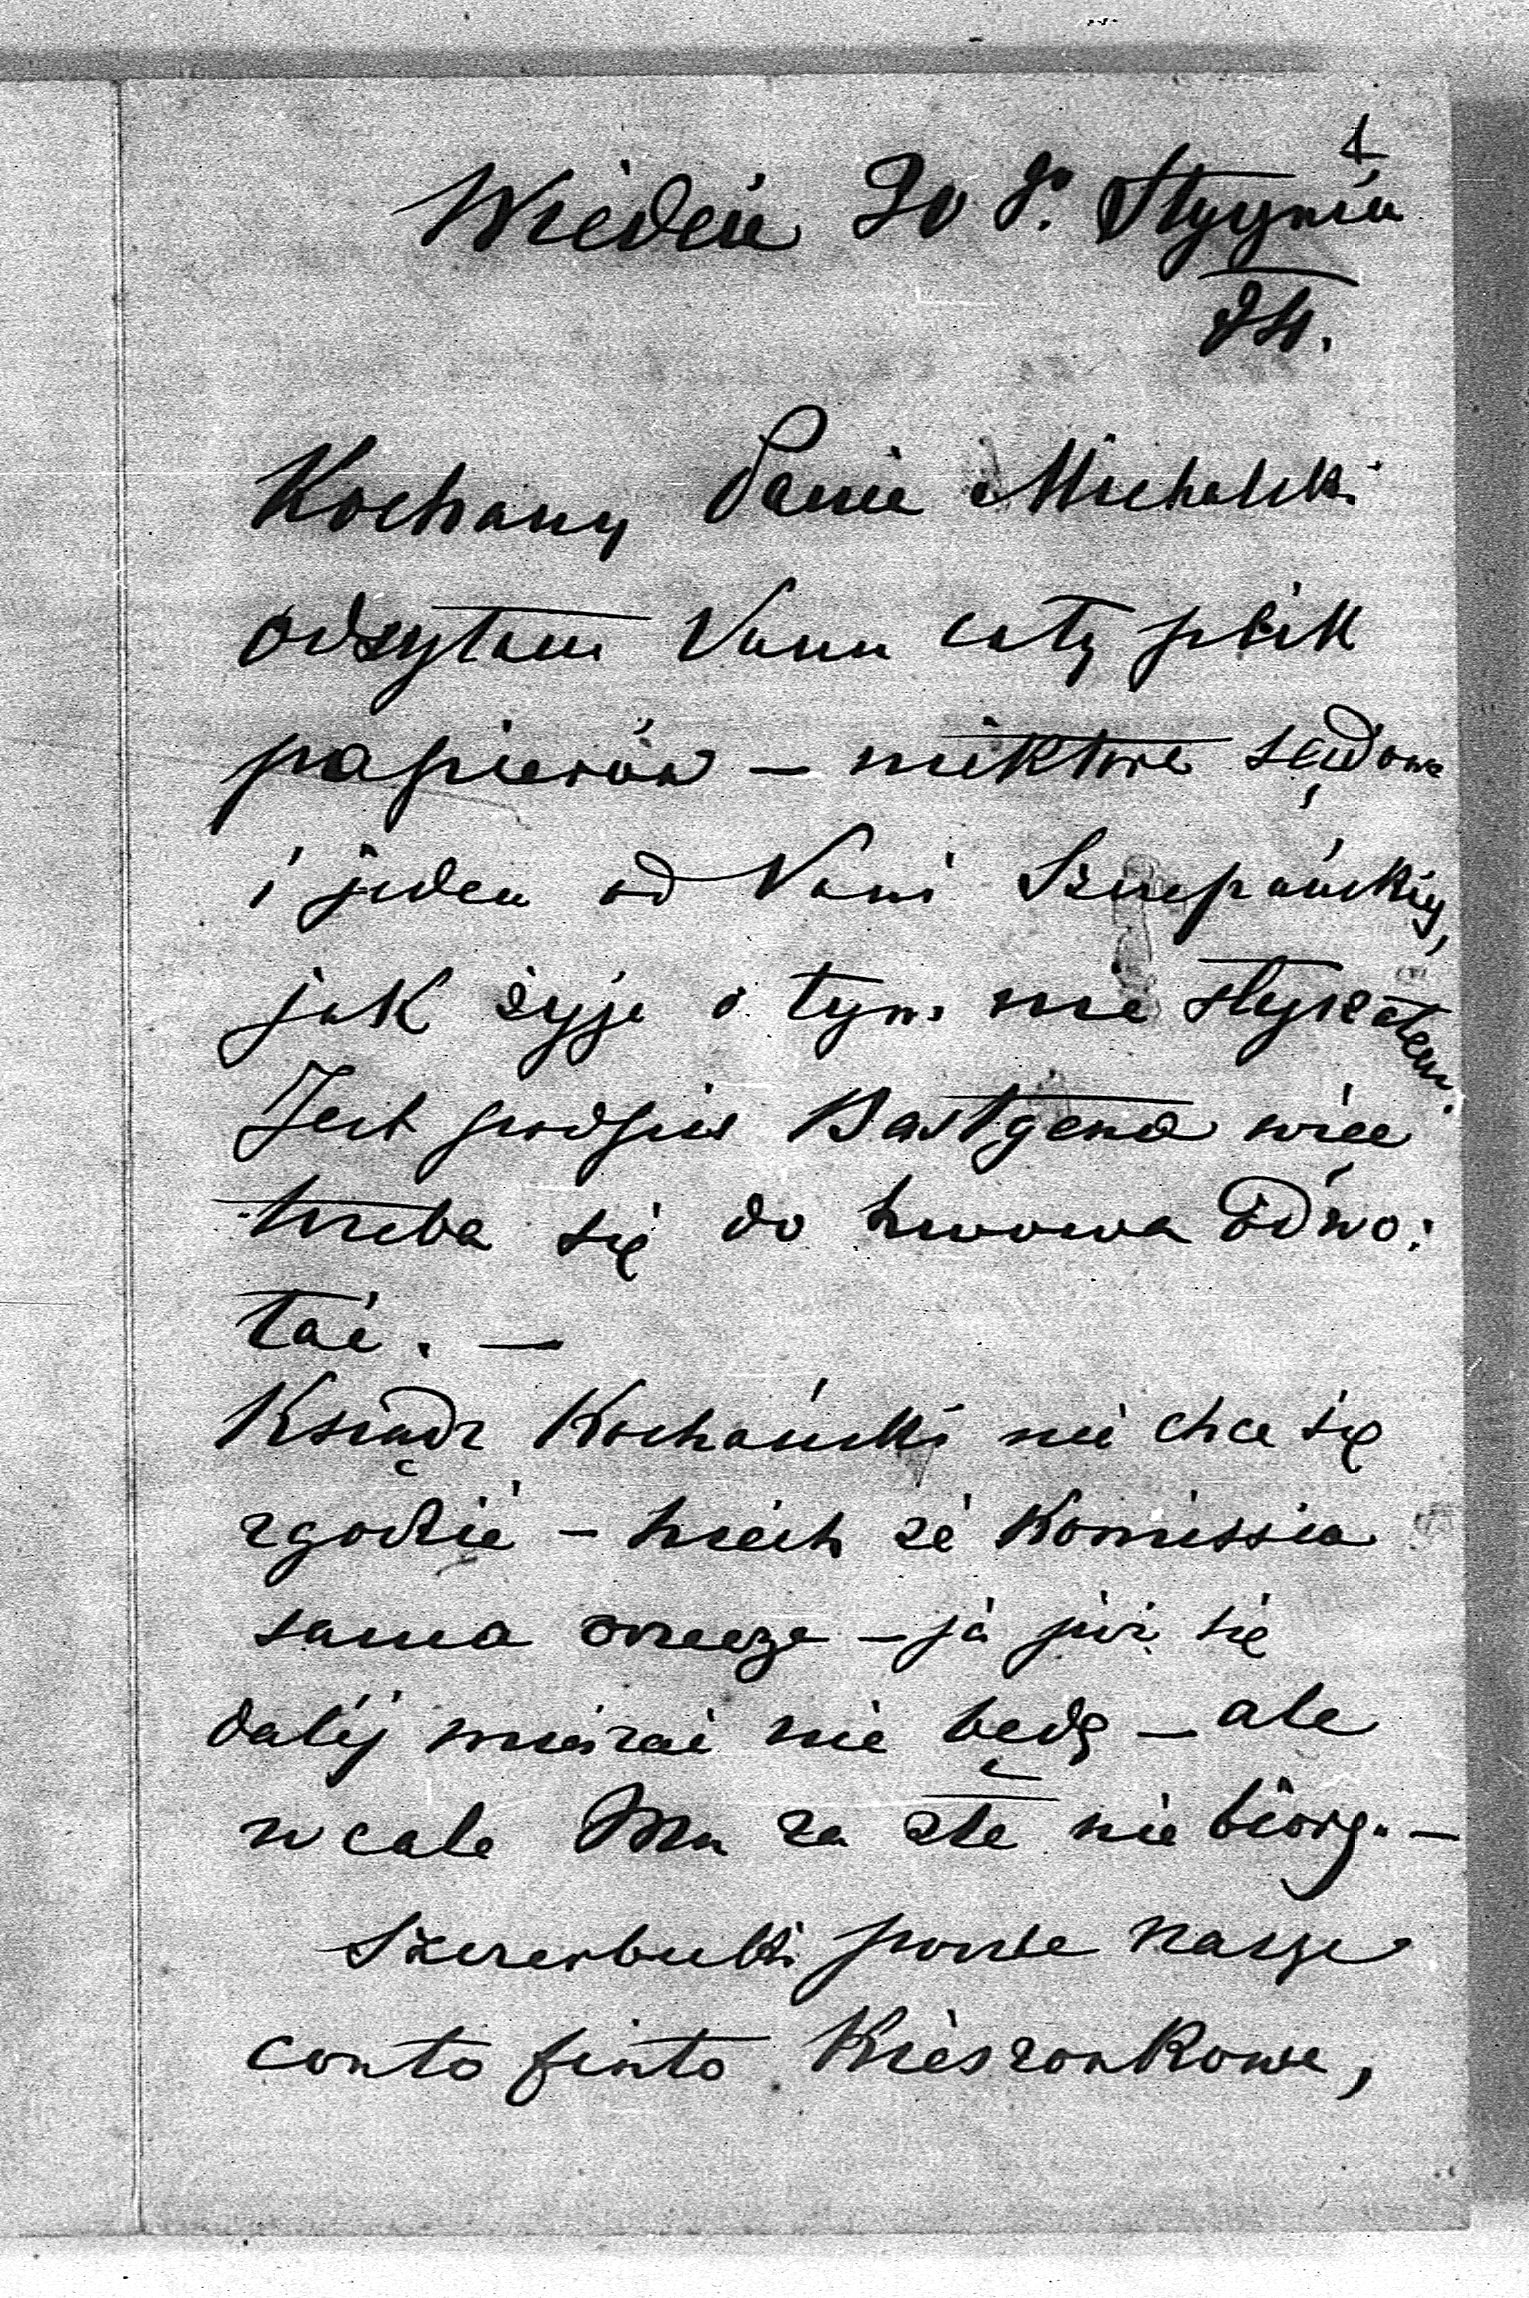 1
Wiedeń 20 S. Stycznia
84.
Kochany Panie Michalski
odsyłam Panu cały plik
papierów – niektóre sądowe
i jeden od Pani Szczepańskiej,
jak żyję o tym nie słyszałem.
Jest podpis Bastgena więc
trzeba się do Lwowa odwo:
łać. —
Ksiądz Kochański nie chce się
zgodzić – niech że Komissia
sama orzecze – ja już się
dalej mieszać nie będę – ale
wcale Mu za złe nie biorę. –
nasze
conto finto Kieszonkowe,